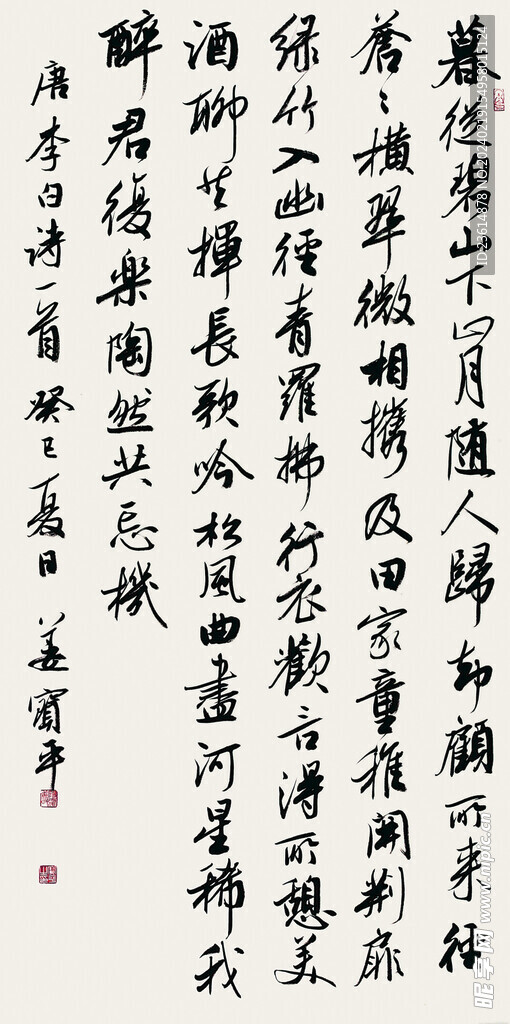 暮從碧山下山月随人歸却顧所来徑
蒼々横翠微相携及田家童稚開荆扉
緑竹入幽徑青羅拂行衣歡言得所憩美
酒聊共揮長歌吟松風曲盡河星稀我
醉君復樂陶然共忘機
唐李白詩一首癸巳夏日姜寶平
ID:23614878 NO.20240219154958015124
昵享网 www.nipic.cn